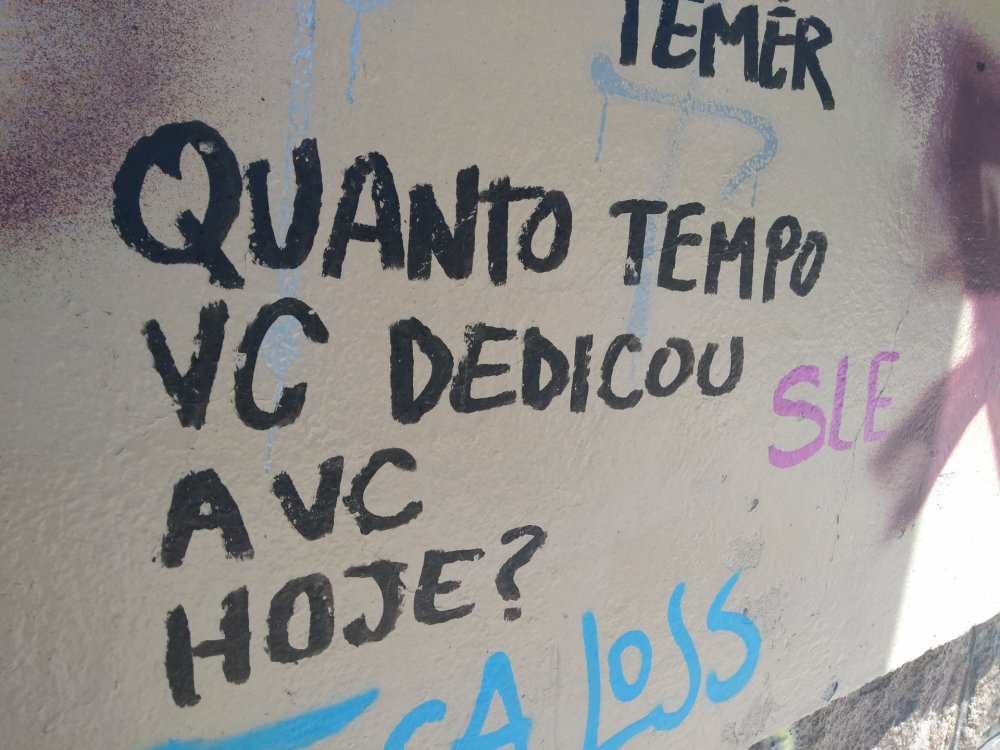 TEMER
QUANTO TEMPO
VC DEDICOU
A VC
HOJE?
SLE
CA LOSS